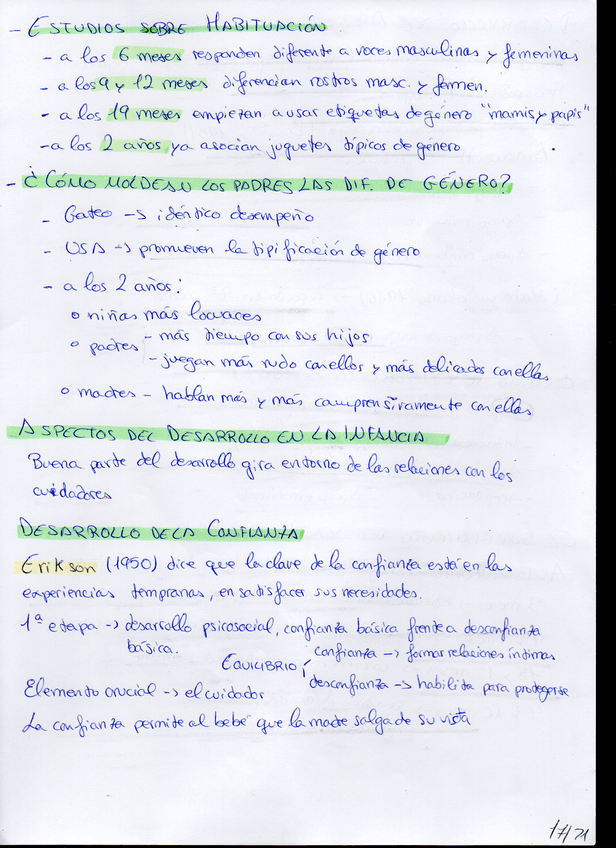 - ESTUDIOS SOBRE HABITUACIÓN.
- a los 6 meses responden diferente a voces masculinas y femeninas
- a los 9 y 12 meses diferencian rostros masc. y femen.
- a los 19 meses empiezan a usar etiquetas de género "mamis y papis"
- a los 2 años ya asocian juguetes típicos de género
- ¿CÓMO MOLDEAN LOS PADRES LAS DIF. DE GÉNERO?
- Gateo -> idéntico desempeño
- USA -> promueven la tipificación de género
- a los 2 años:
o niñas más locuaces
o padres - más tiempo con sus hijos
- juegan más rudo con ellos y más delicados con ellas
o madres - hablan más y más comprensivamente con ellas
ASPECTOS DEL DESARROLLO EN LA INFANCIA
Buena parte del desarrollo gira entorno de las relaciones con los
cuidadores
DESARROLLO DE LA CONFIANZA
Erikson (1950) dice que la clave de la confianza está en las
experiencias tempranas, en satisfacer sus necesidades.
1ª etapa -> desarrollo psicosocial, confianza básica frente a desconfianza
básica.
EQUILIBRIO confianza -> formar relaciones íntimas
desconfianza -> habilita para protegerse
Elemento crucial -> el cuidador
La confianza permite al bebé que la madre salga de su vista